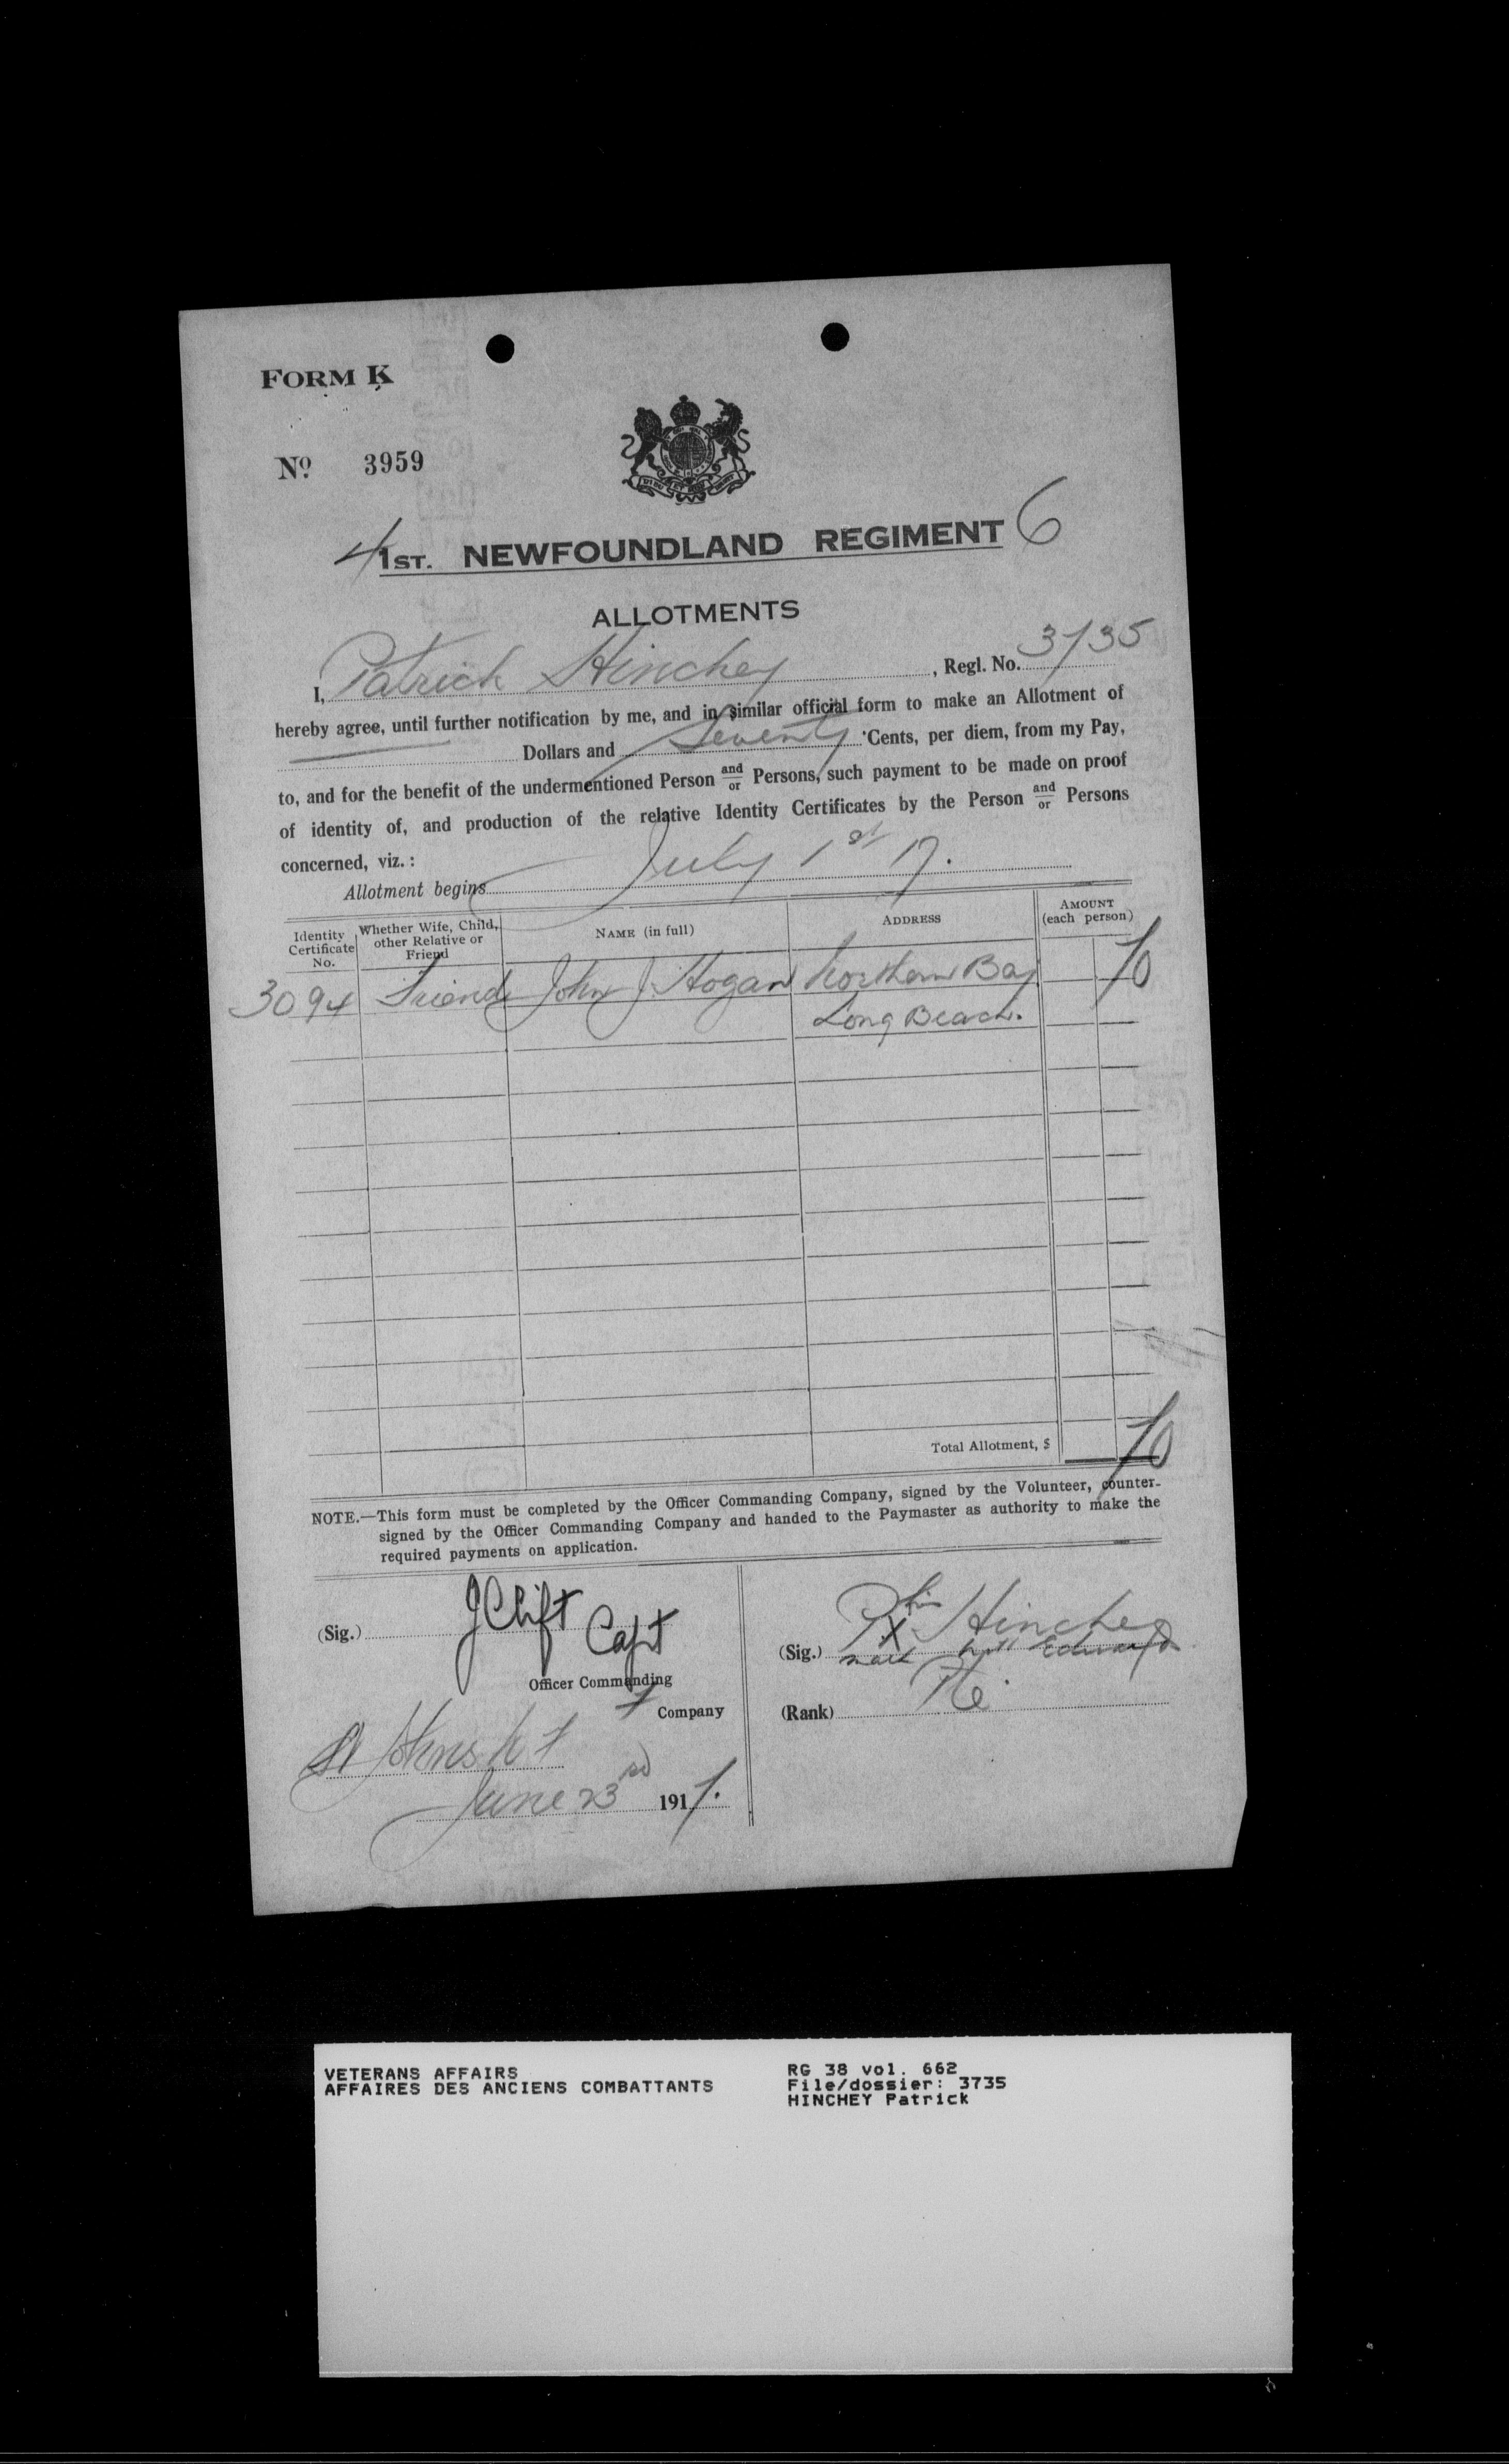 FORM K
No 3959
4 1ST. NEWFOUNDLAND REGIMENT 6
ALLOTMENTS
I, Patrick Hinchey, Regl. No. 3735
hereby agree, until further notification by me, and in similar official form to make an Allotment of
Dollars and Seventy Cents, per diem, from my Pay,
to, and for the benefit of the undermentioned Person and/or Persons, such payment to be made on proof
of identity of, and production of the relative Identity Certificates by the Person and/or Persons
concerned, viz.:
Allotment begins July 1st 17.
Identity Certificate No. Whether Wife, Child, other Relative or Friend NAME (in full) ADDRESS AMOUNT (each person)
3094 Friend John J. Hogan Northern Bay 70
Long Beach.
Total Allotment, $ 70
NOTE.—This form must be completed by the Officer Commanding Company, signed by the Volunteer, counter-
signed by the Officer Commanding Company and handed to the Paymaster as authority to make the
required payments on application.
(Sig.) J Clift Capt
Officer Commanding
Company
St Johns
June 23rd 1917.
(Sig.) P his X Hinchey
mark
(Rank) Pte.
VETERANS AFFAIRS
AFFAIRES DES ANCIENS COMBATTANTS
RG 38 vol. 662
File/dossier: 3735
HINCHEY Patrick